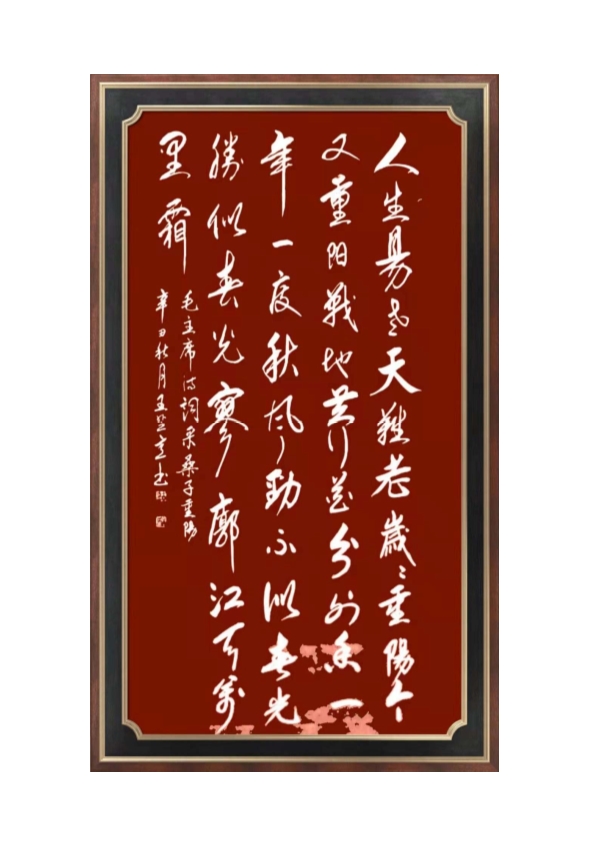 人生易老天難老歲〻重陽今
又重阳戰地黄花分外香一
年一度秋風勁不似春光
勝似春光寥廓江天萬
里霜
毛主席诗詞采桑子重陽
辛丑秋月王书